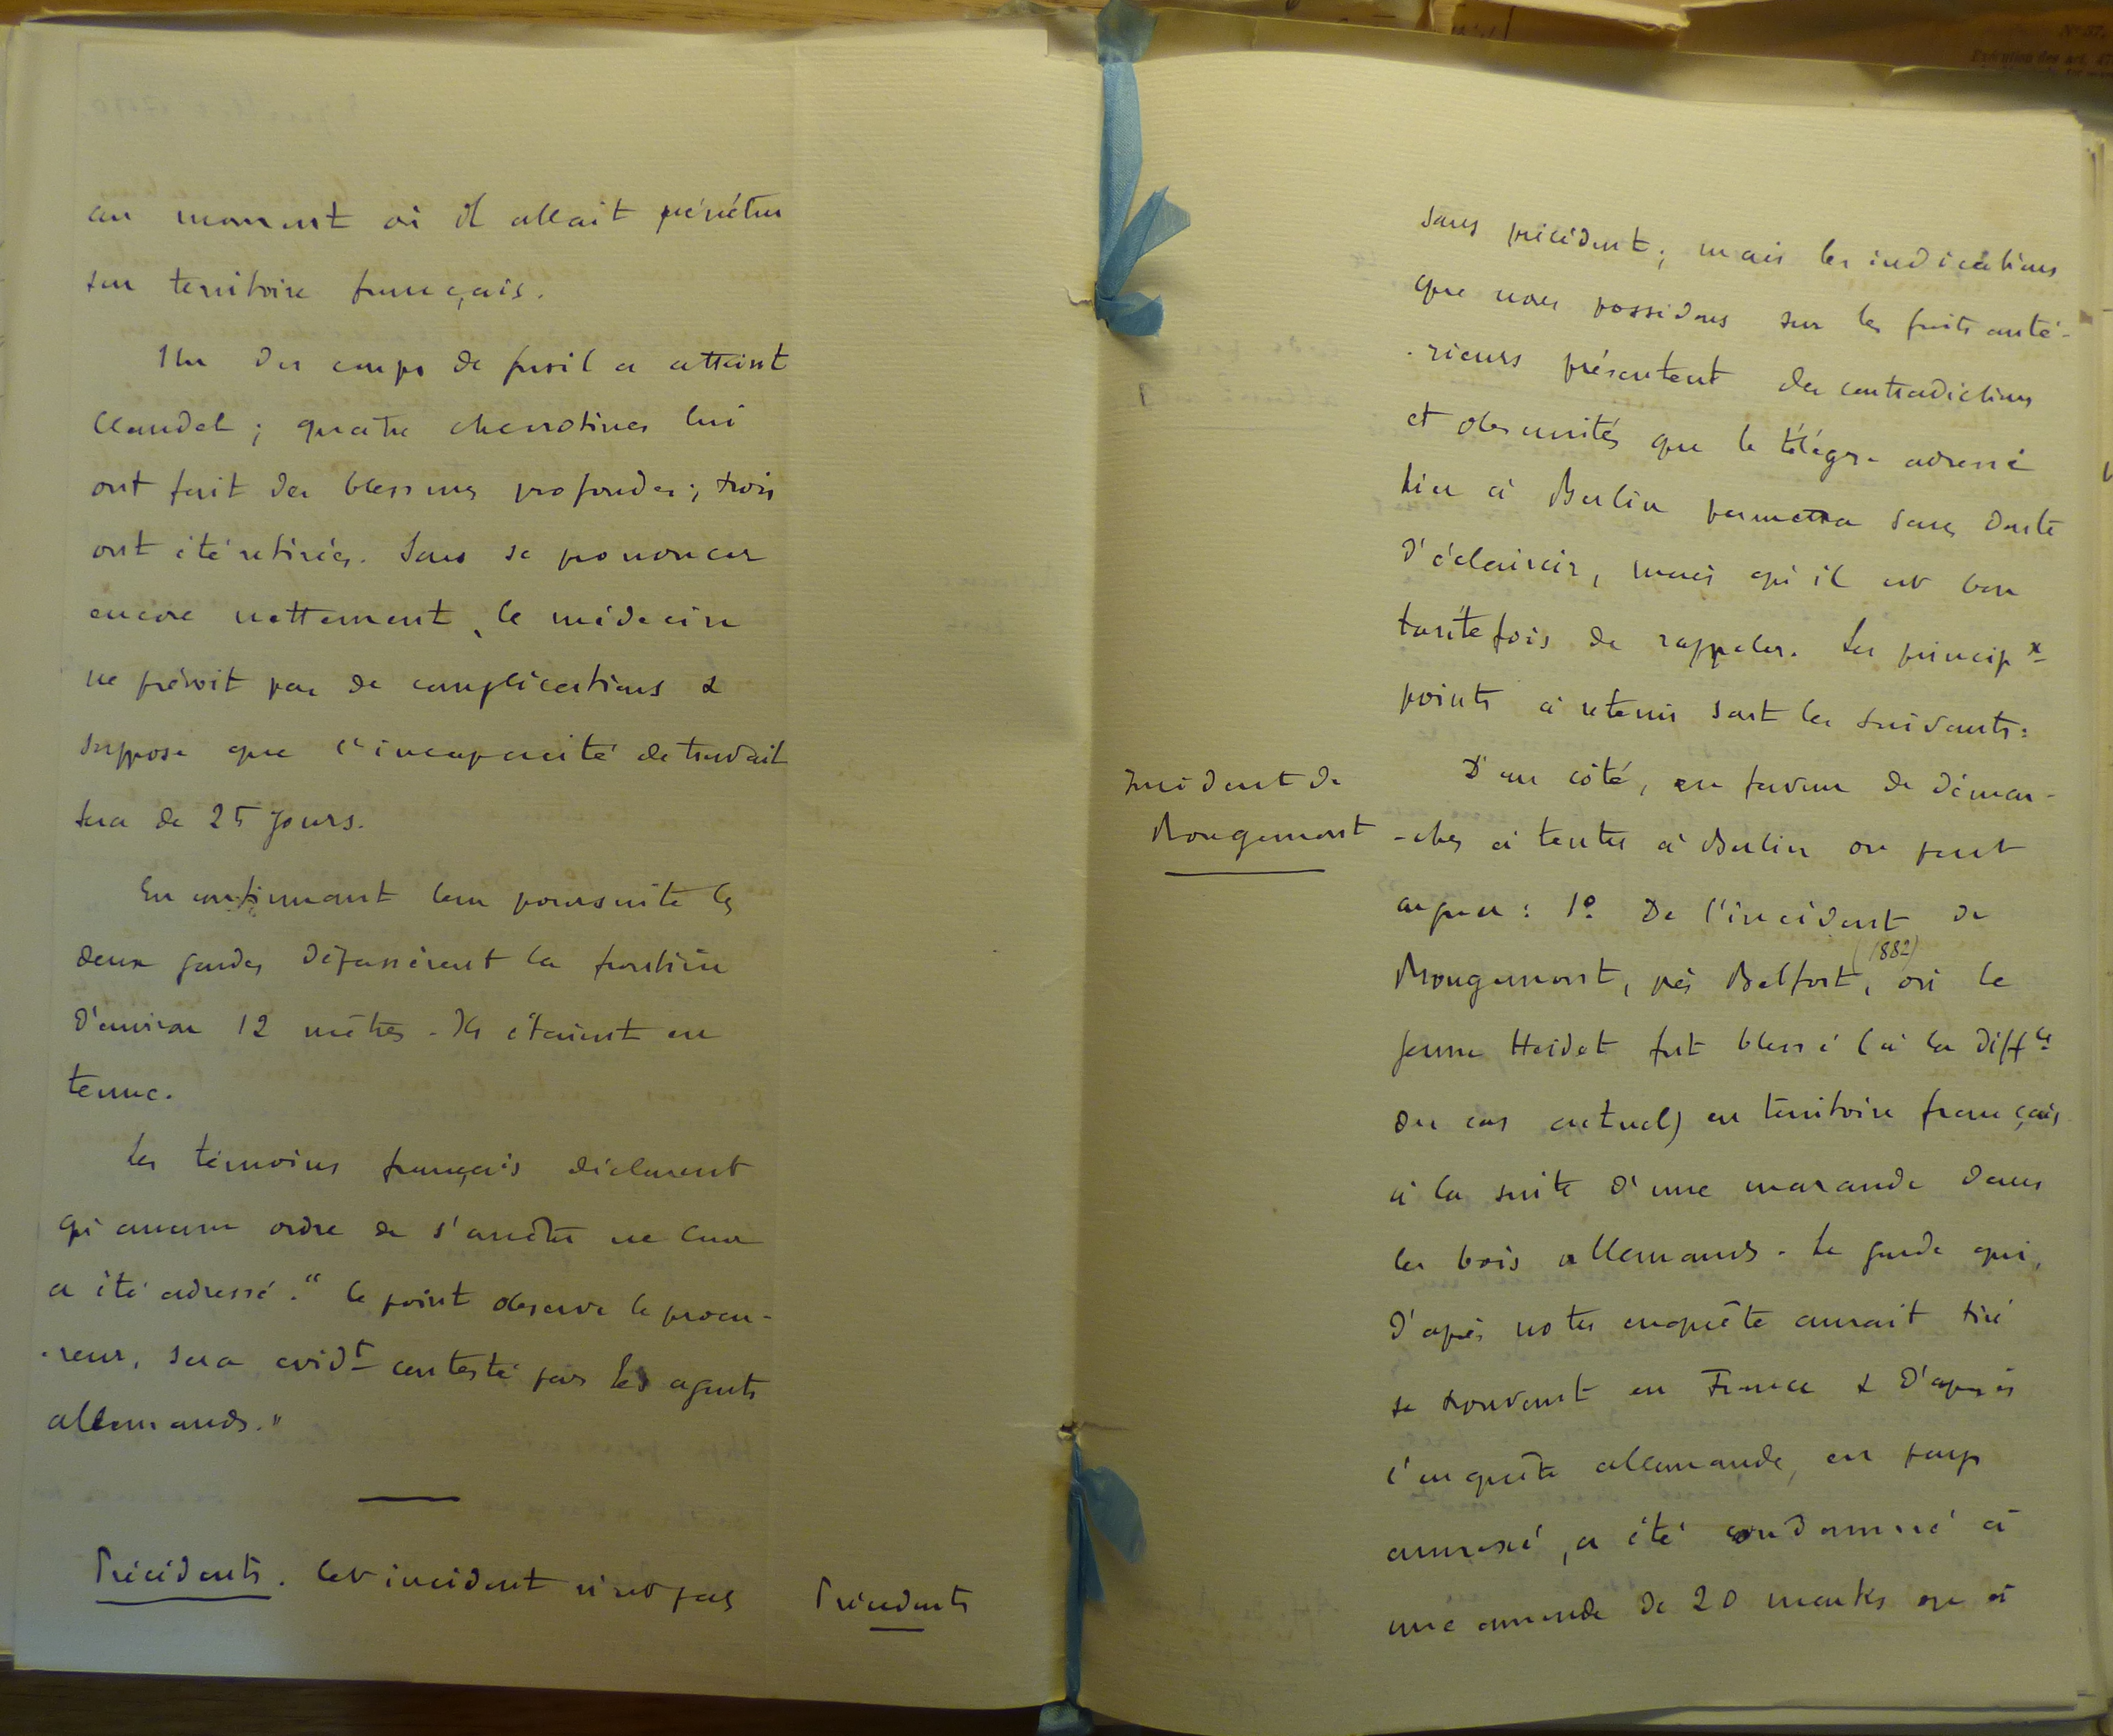 au moment où il allait pénétrer
sur territoire français.
Un des coups de fusil a atteint
Claudel ; quatre chevrotines lui
ont fait des blessures profondes ; trois
ont été retirées. Sans se prononcer
encore nettement, le médecin
ne prévoit pas de complications &
suppose que l'incapacité de travail
sera de 25 jours.
En continuant leur poursuite les
deux gardes dépassèrent la frontière
d'environ 12 mètres. Ils étaient en
tenue.
Les témoins français déclarent
qu'aucun ordre de s'arrêter ne leur
a été adressé. "Ce point observe le procu-
-reur, sera évidt contesté par les agents
allemands."
Précédents. Cet incident n'est pas
Précédents
sans précédent ; mais les indications
que nous possédons sur les faits anté-
-rieurs présentent des contradictions
et obscurités que le télégr. adressé
hier à Berlin permettra sans doute
d'éclaircir, mais qu'il est bon
toutefois de rappeler. Les principx
points à retenir sont les suivants :
Incident de
Rougemont
D'un côté, en faveur de démar-
-ches à tenter à Berlin on peut
arguer : 1º De l'incident de
Rougemont, près Belfort, (1882) où le
jeune Heidet fut blessé (à la diffce
du cas actuel) en territoire français
à la suite d'une maraude dans
les bois allemands. Le garde qui,
d'après notre enquête aurait tiré
se trouvant en France & d'après
l'enquête allemande, en pays
annexé, a été condamné à
une amende de 20 marks ou à